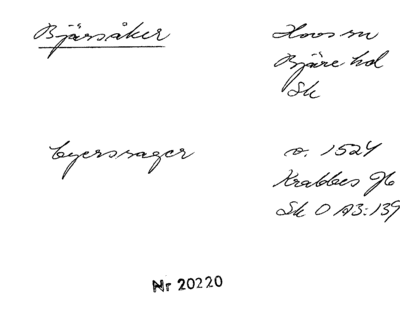 Bjärsåker
Hovs sn
Bjäre hd
Sk
byersager
o. 1524
Krabbes Jb
Sk O A3:139
Nr 20220